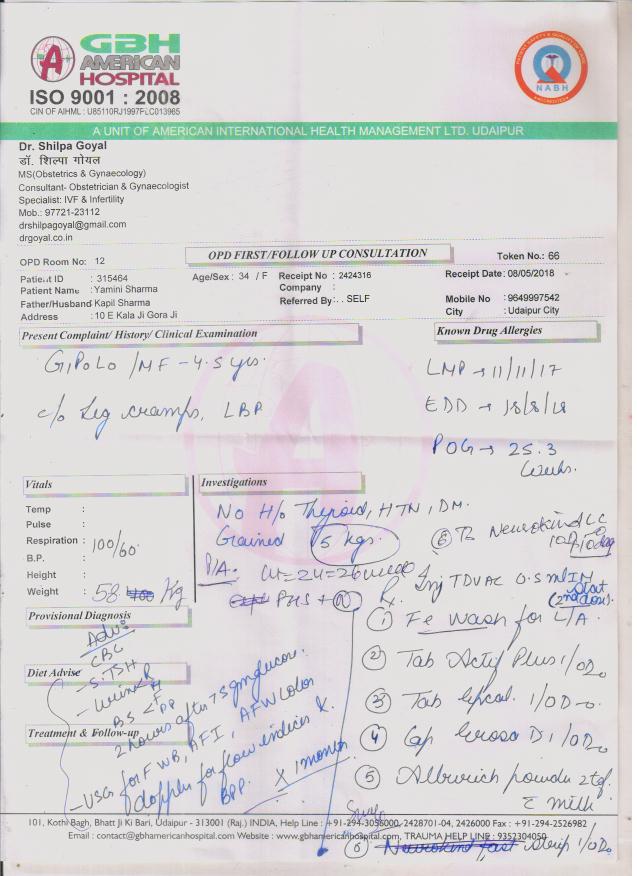 GBH
AMERICAN
HOSPITAL
ISO 9001 : 2008
CIN OF AIHML : U85110RJ1997PLC013965
NABH
A UNIT OF AMERICAN INTERNATIONAL HEALTH MANAGEMENT LTD. UDAIPUR
Dr. Shilpa Goyal
डॉ. शिल्पा गोयल
MS(Obstetrics & Gynaecology)
Consultant- Obstetrician & Gynaecologist
Specialist: IVF & Infertility
Mob.: 97721-23112
drshilpagoyal@gmail.com
drgoyal.co.in
OPD Room No: 12
OPD FIRST/FOLLOW UP CONSULTATION
Token No.: 66
Patient ID : 315464
Age/Sex : 34 / F
Receipt No : 2424316
Receipt Date : 08/05/2018
Patient Name : Yamini Sharma
Company :
Father/Husband Kapil Sharma
Referred By : . . SELF
Mobile No : 9649997542
Address : 10 E Kala Ji Gora Ji
City : Udaipur City
Present Complaint/ History/ Clinical Examination
Known Drug Allergies
G1P0L0 /MF - 4.5 yrs.
LMP → 11/11/17
c/o leg cramps, LBP
EDD → 18/8/18
POG → 25.3
weeks.
Vitals
Investigations
Temp :
Pulse
Respiration :
B.P. :
100/60
Height :
Weight : 58 Kg
No H/o Thyroid, HTN, DM.
Gained 5 kgs.
6 Tab Neurokind LC
P/A: ut = 24-26 week
FHS +
Rx Inj TDVAC 0.5 ml IM
Stat
(2nd dose)
Provisional Diagnosis
Adv:
CBC
S.TSH
Diet Advise
Urine R
BS < F
PP
2 hours after 75 gm glucose.
Treatment & Follow-up
USG for FWB, AFI, AFW Color
doppler for flow indices &
BPP.
X 1 month
1 Fe wash for L/A
2 Tab Actif Plus 1/OD
3 Tab 1/OD
4 Cap D 1/OD
5 powder 2 tsf.
c milk.
101, Kothi Bagh, Bhatt Ji Ki Bari, Udaipur - 313001 (Raj.) INDIA, Help Line : +91-294-3056000, 2428701-04, 2426000 Fax : +91-294-2526982
Email : contact@gbhamericanhospital.com Website : www.gbhamericanhospital.com, TRAUMA HELP LINE : 9352304050
6 Neurokind fast strip 1/OD